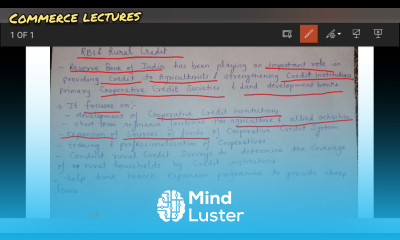 COMMERCE LECTURES
1 OF 1
RBI & Rural Credit
- Reserve Bank of India has been playing an important role in
providing Credit to Agriculturists & strengthening Credit Institutions
primary Cooperative Credit Societies & Land development banks
→ It focuses on:-
- development of Cooperative Credit institutions
- short term refinance facilities for agriculture & allied activities
- expansion of Sources of funds of Cooperative Credit system
- training & professionalisation of Cooperatives
- Conduct rural Credit Surveys to determine the coverage
of rural households by Credit institutions
- help bank branch expansion programme to provide cheap
loans
Mind
Luster